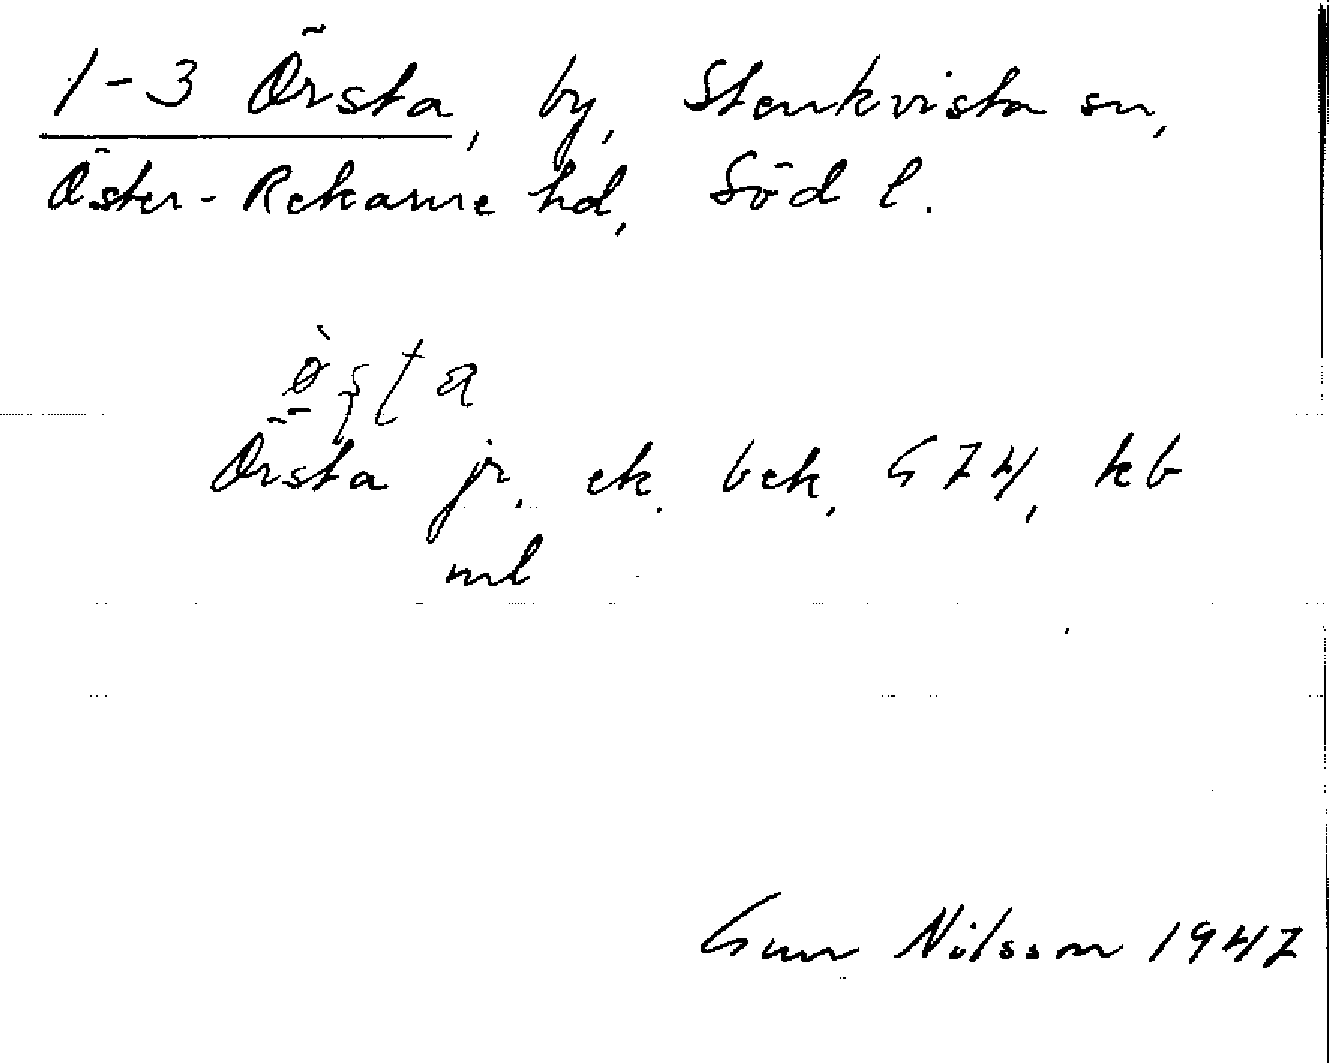 1-3 Örsta, by, Stenkvista sn,
Öster-Rekarne hd, Söd l.
Örsta jr. ek. bek, G74, kb
ml
Gun Nilsson 1947